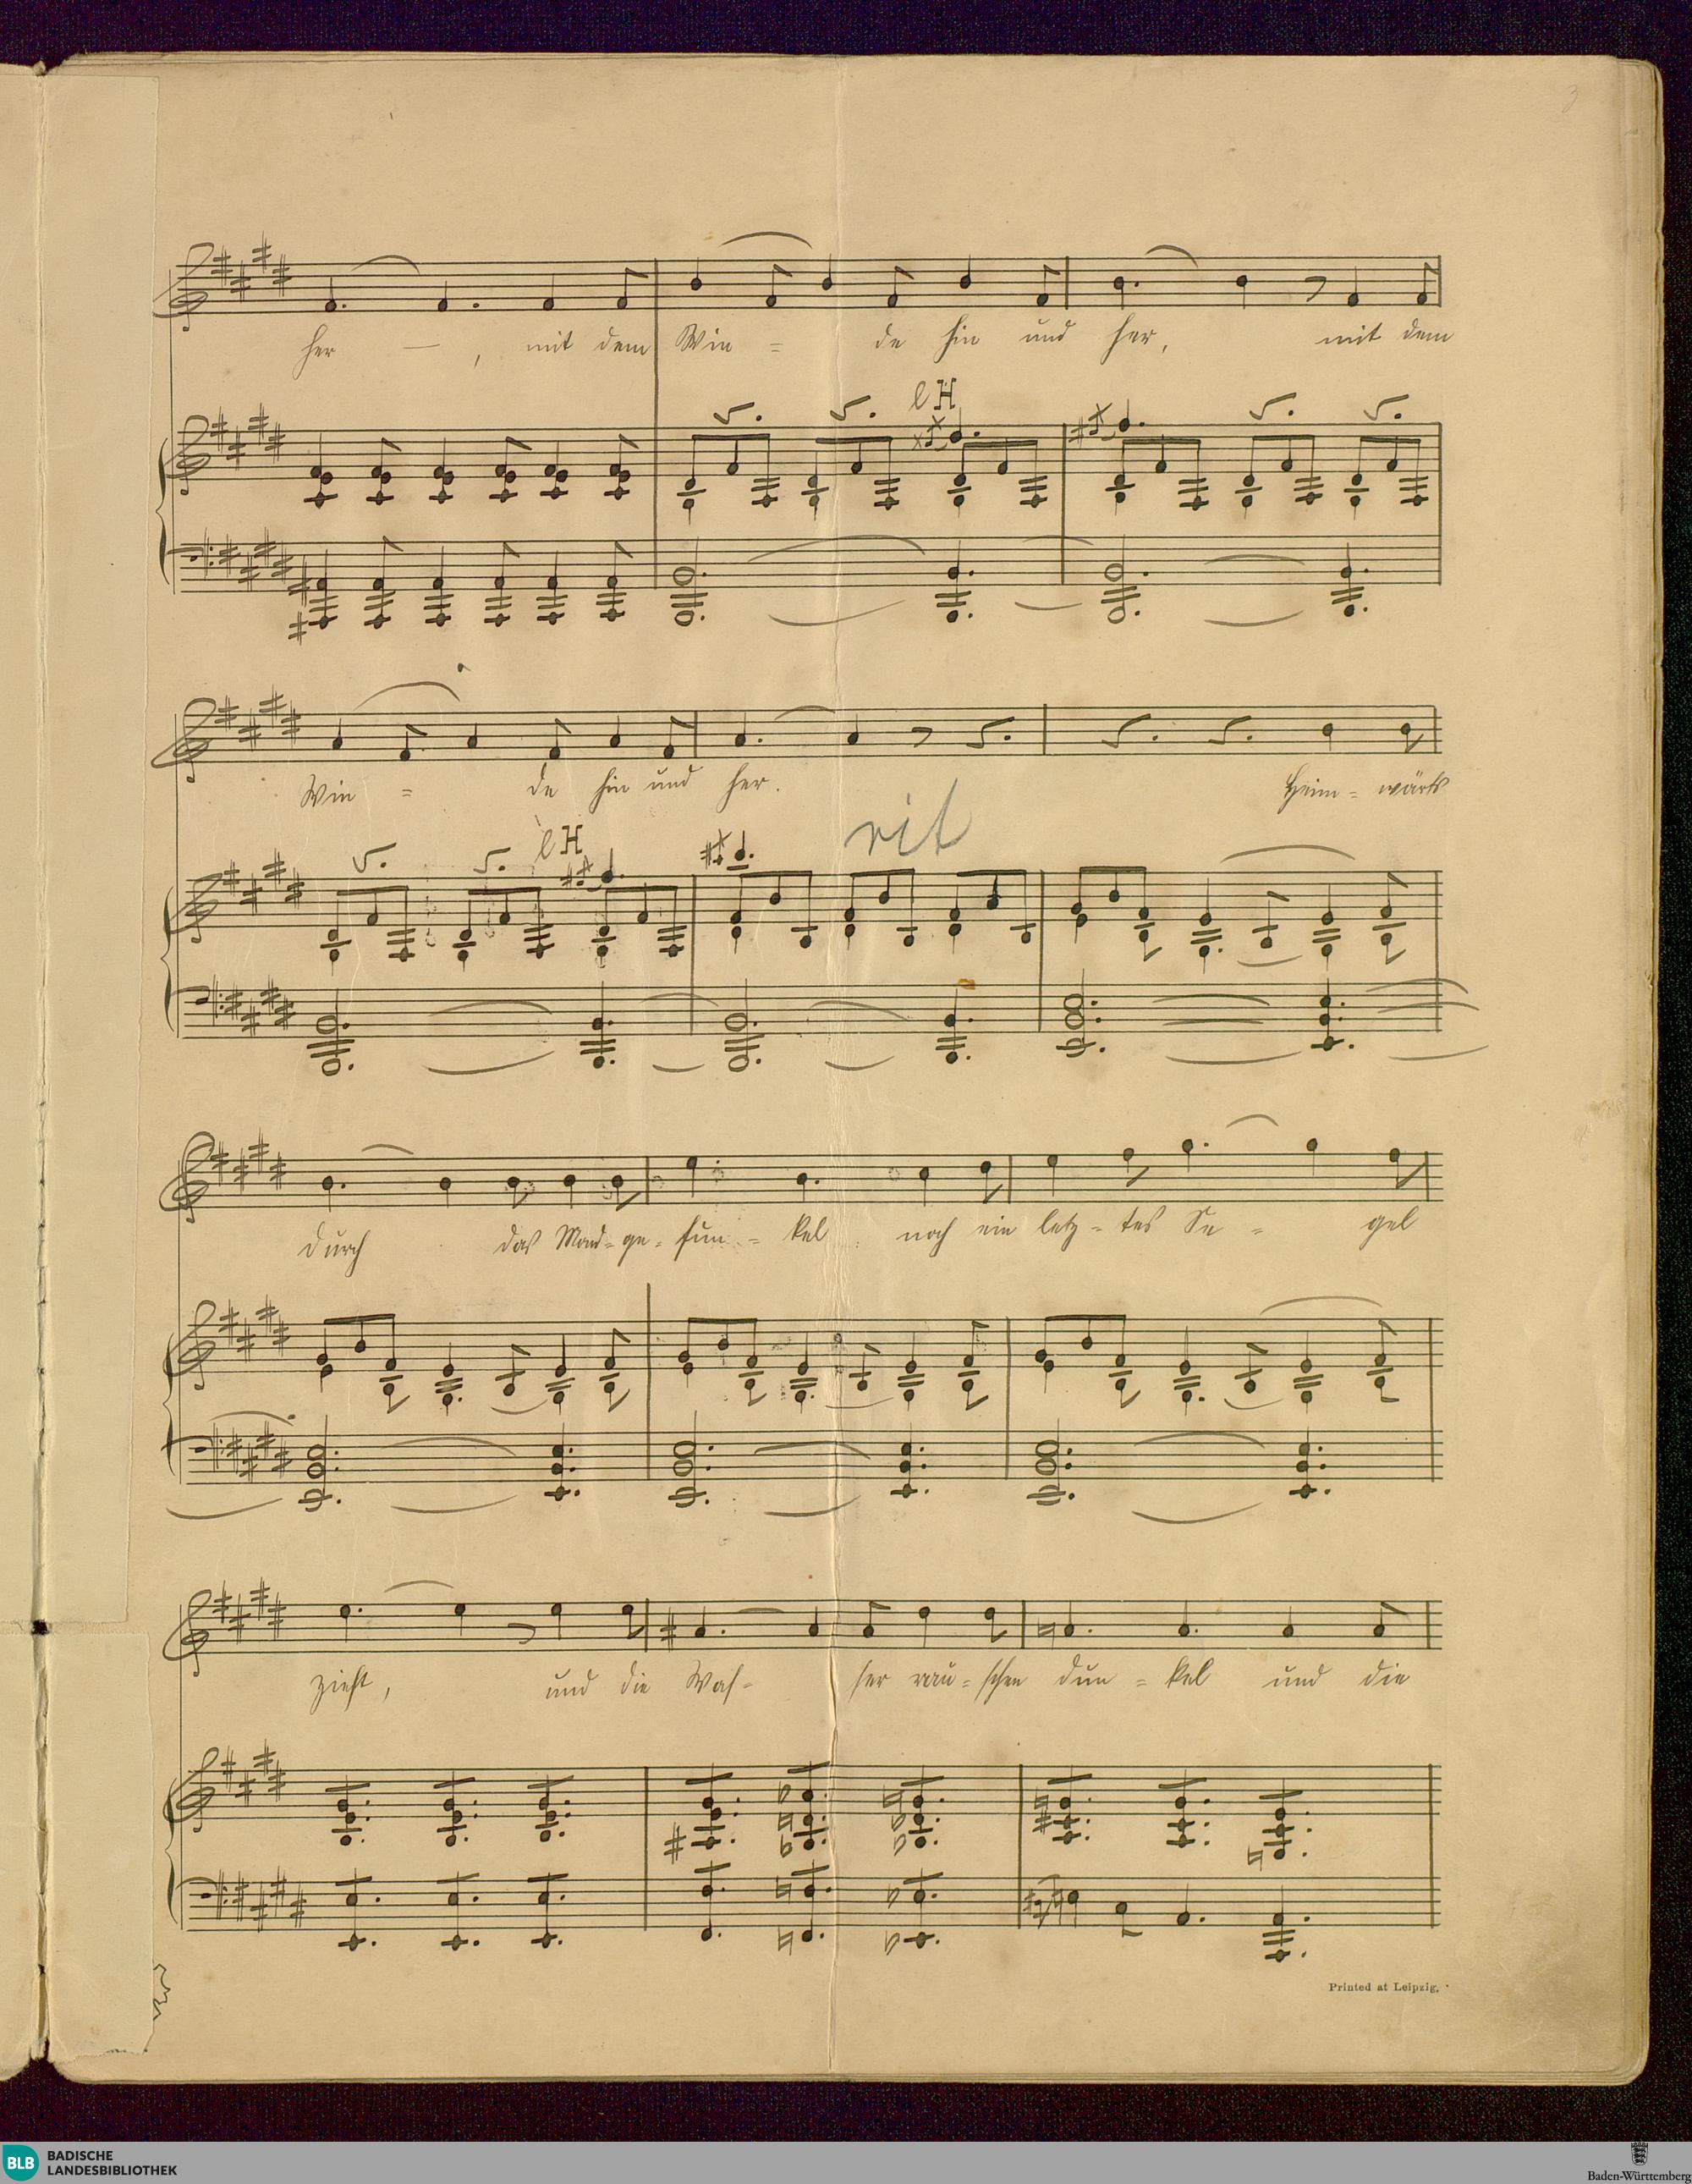 3
her — , mit dem Win = de hin und her, mit dem
l H
Win = de hin und her. Heim = wärts
l H
rit
durch das Mond = ge = fun = kel noch ein letz = tes Se = gel
zieht, und die Was = ser rau = schen dun = kel und die
Printed at Leipzig.
BLB BADISCHE
LANDESBIBLIOTHEK
Baden-Württemberg